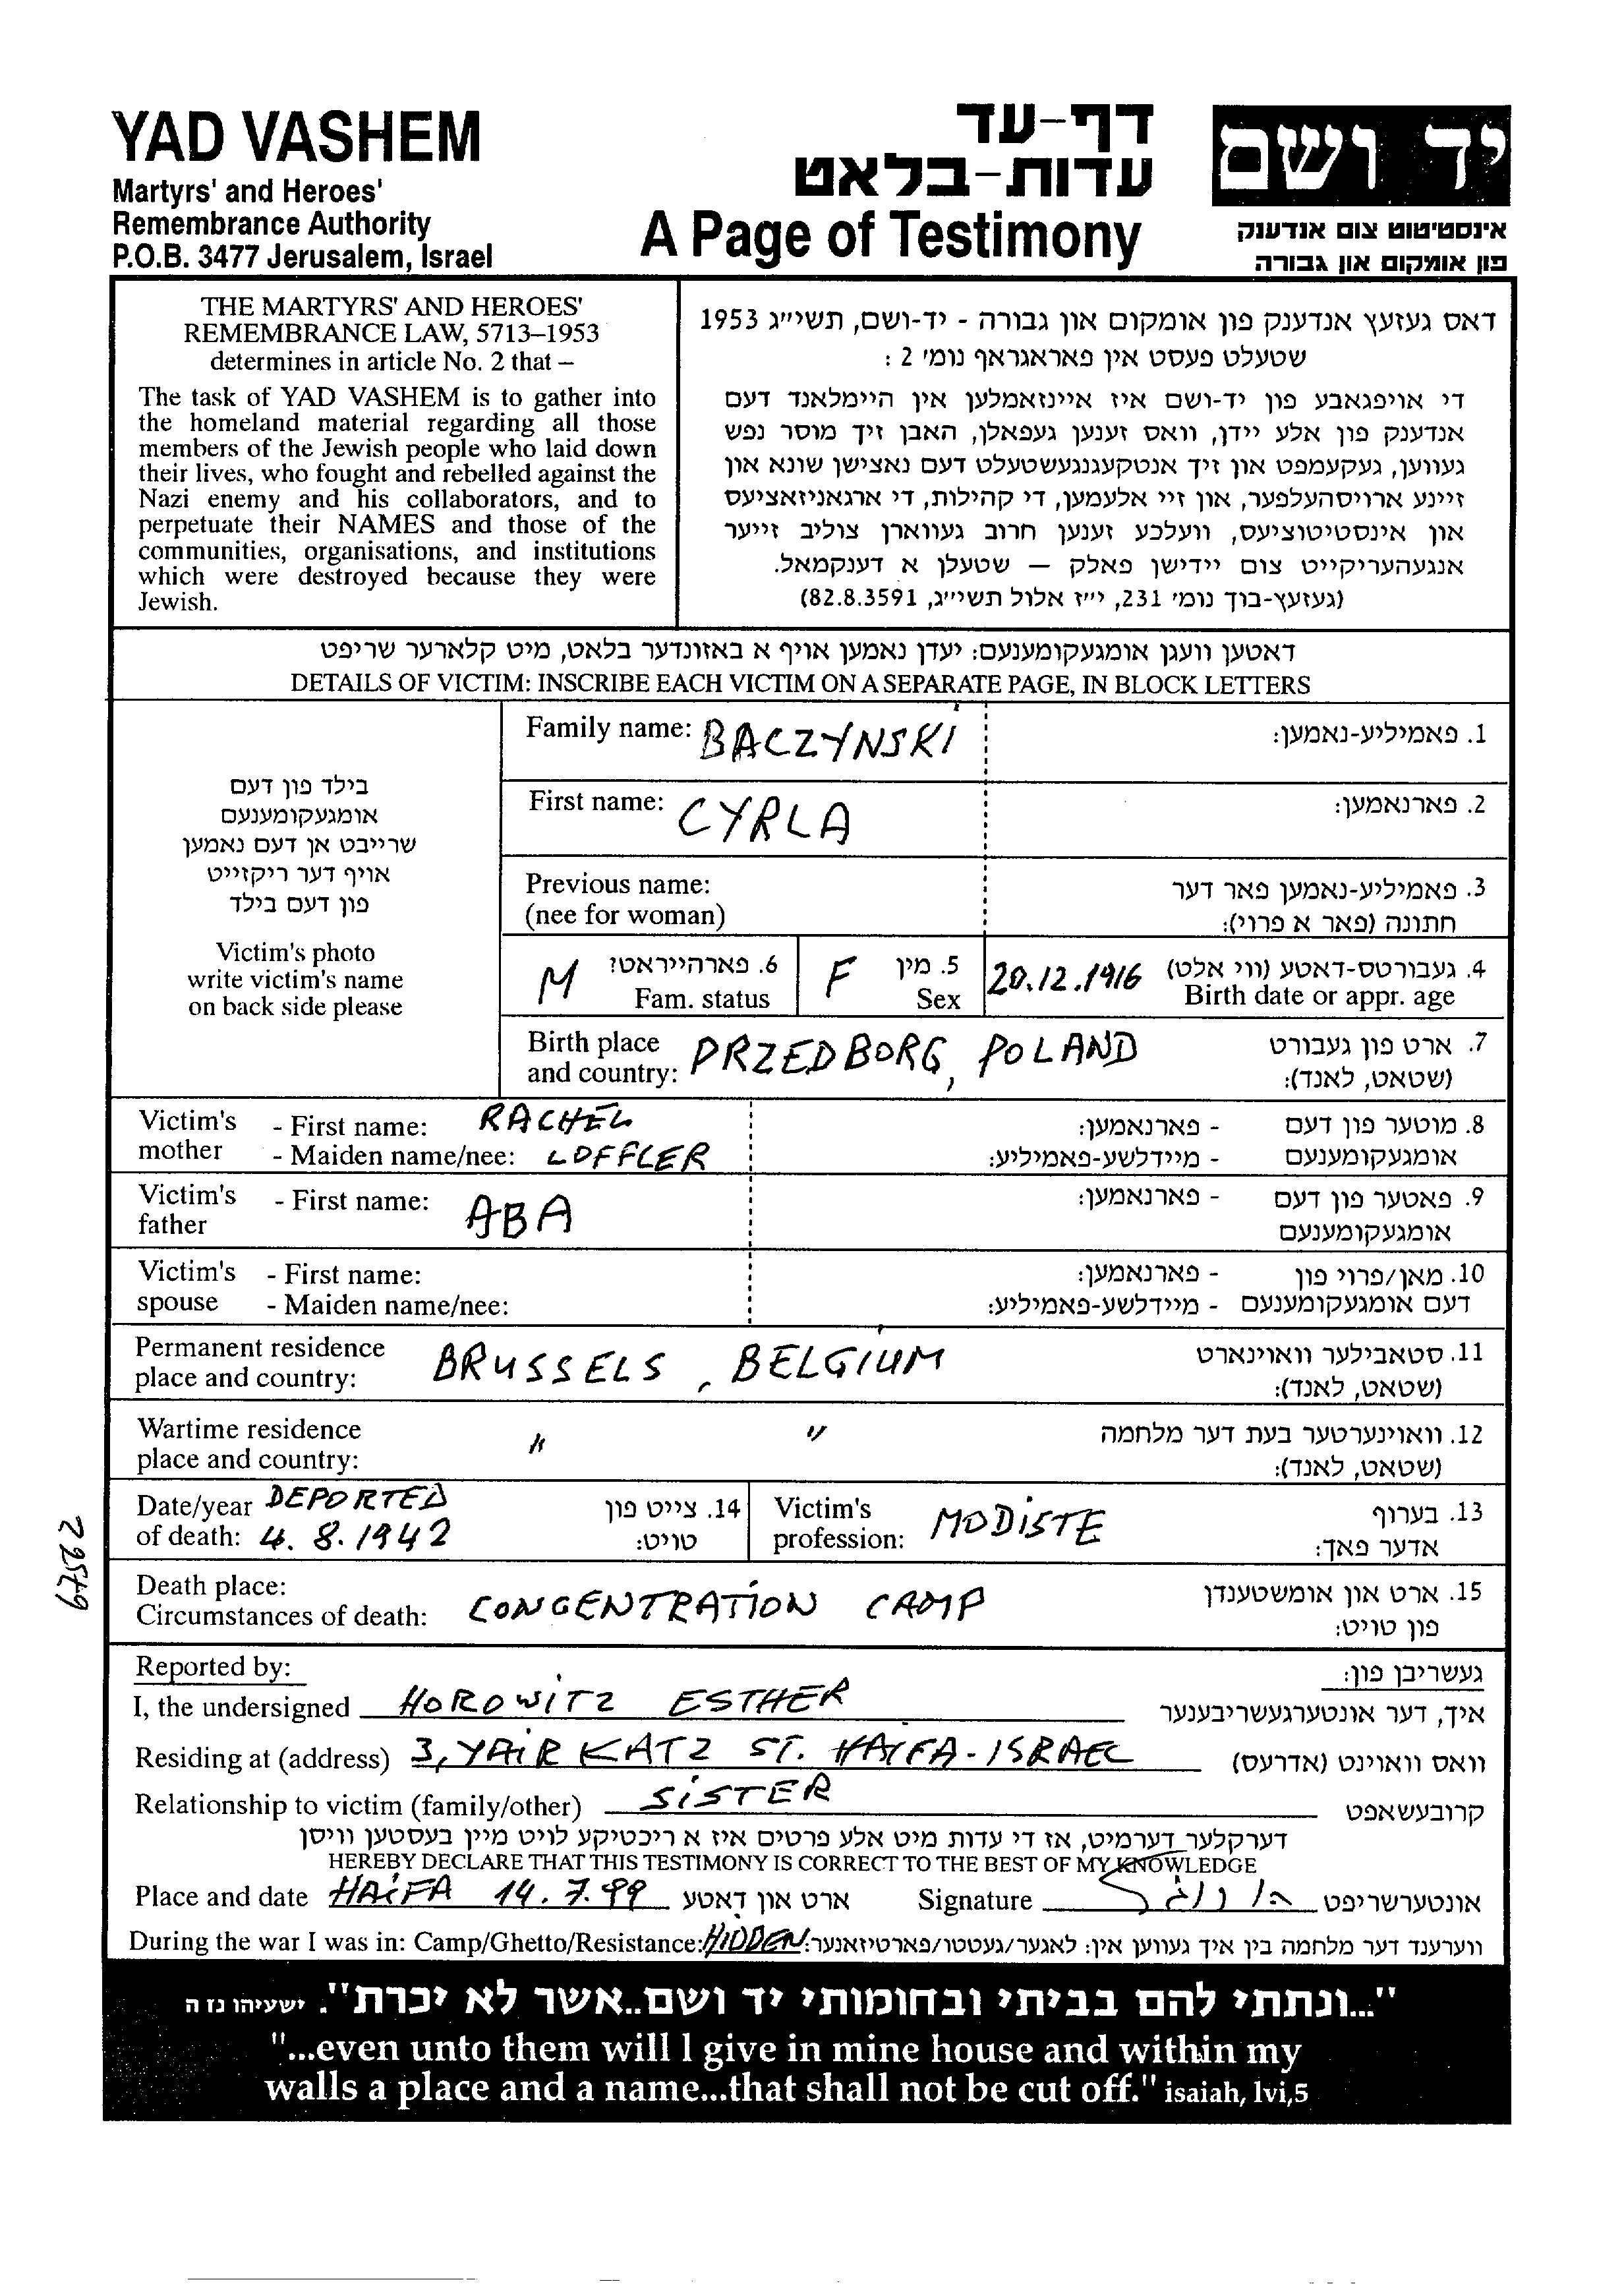 YAD VASHEM
Martyrs' and Heroes'
Remembrance Authority
P.O.B. 3477 Jerusalem, Israel
דף-עד
עדות-בלאט
A Page of Testimony
יד ושם
אינסטיטוט צום אנדענק
פון אומקום און גבורה
THE MARTYRS' AND HEROES'
REMEMBRANCE LAW, 5713–1953
determines in article No. 2 that –
The task of YAD VASHEM is to gather into
the homeland material regarding all those
members of the Jewish people who laid down
their lives, who fought and rebelled against the
Nazi enemy and his collaborators, and to
perpetuate their NAMES and those of the
communities, organisations, and institutions
which were destroyed because they were
Jewish.
דאס געזעץ אנדענק פון אומקום און גבורה - יד-ושם, תשי״ג 1953
שטעלט פעסט אין פאראגראף נומ׳ 2 :
די אויפגאבע פון יד-ושם איז איינזאמלען אין היימלאנד דעם
אנדענק פון אלע יידן, וואס זענען געפאלן, האבן זיך מוסר נפש
געווען, געקעמפט און זיך אנטקעגנגעשטעלט דעם נאצישן שונא און
זיינע ארויסהעלפער, און זיי אלעמען, די קהילות, די ארגאניזאציעס
און אינסטיטוציעס, וועלכע זענען חרוב געווארן צוליב זייער
אנגעהעריקייט צום יידישן פאלק — שטעלן א דענקמאל.
(געזעץ-בוך נומ׳ 231, י״ז אלול תשי״ג, 82.8.3591)
דאטען וועגן אומגעקומענעם: יעדן נאמען אויף א באזונדער בלאט, מיט קלארער שריפט
DETAILS OF VICTIM: INSCRIBE EACH VICTIM ON A SEPARATE PAGE, IN BLOCK LETTERS
בילד פון דעם
אומגעקומענעם
שרייבט אן דעם נאמען
אויף דער ריקזייט
פון דעם בילד
Victim's photo
write victim's name
on back side please
Family name: BACZYNSKI 1. פאמיליע-נאמען:
First name: CYRLA 2. פארנאמען:
Previous name: 3. פאמיליע-נאמען פאר דער
(nee for woman) חתונה (פאר א פרוי):
M 6. פארהייראט? F 5. מין 20.12.1916 4. געבורטס-דאטע (ווי אלט)
Fam. status Sex Birth date or appr. age
Birth place PRZEDBORG, POLAND 7. ארט פון געבורט
and country: (שטאט, לאנד):
Victim's - First name: RACHEL - פארנאמען: 8. מוטער פון דעם
mother - Maiden name/nee: LOFFLER - מיידלשע-פאמיליע: אומגעקומענעם
Victim's - First name: ABA - פארנאמען: 9. פאטער פון דעם
father אומגעקומענעם
Victim's - First name: - פארנאמען: 10. מאן/פרוי פון
spouse - Maiden name/nee: - מיידלשע-פאמיליע: דעם אומגעקומענעם
Permanent residence BRUSSELS, BELGIUM 11. סטאבילער וואוינארט
place and country: (שטאט, לאנד):
Wartime residence " " 12. וואוינערטער בעת דער מלחמה
place and country: (שטאט, לאנד):
Date/year DEPORTED 14. צייט פון Victim's MODISTE 13. בערוף
of death: 4. 8. 1942 טויט: profession: אדער פאך:
Death place: 15. ארט און אומשטענדן
Circumstances of death: CONCENTRATION CAMP פון טויט:
22579
Reported by: געשריבן פון:
I, the undersigned HOROWITZ ESTHER איך, דער אונטערגעשריבענער
Residing at (address) 3, YAIR KATZ ST. HAIFA - ISRAEL וואס וואוינט (אדרעס)
Relationship to victim (family/other) SISTER קרובעשאפט
דערקלער דערמיט, אז די עדות מיט אלע פרטים איז א ריכטיקע לויט מיין בעסטען וויסן
HEREBY DECLARE THAT THIS TESTIMONY IS CORRECT TO THE BEST OF MY KNOWLEDGE
Place and date HAIFA 14.7.99 ארט און דאטע Signature אונטערשריפט
During the war I was in: Camp/Ghetto/Resistance: HIDDEN ווערענד דער מלחמה בין איך געווען אין: לאגער/געטטו/פארטיזאנער:
"...ונתתי להם בביתי ובחומותי יד ושם..אשר לא יכרת". ישעיהו נז ה
"...even unto them will I give in mine house and within my
walls a place and a name...that shall not be cut off." isaiah, lvi,5